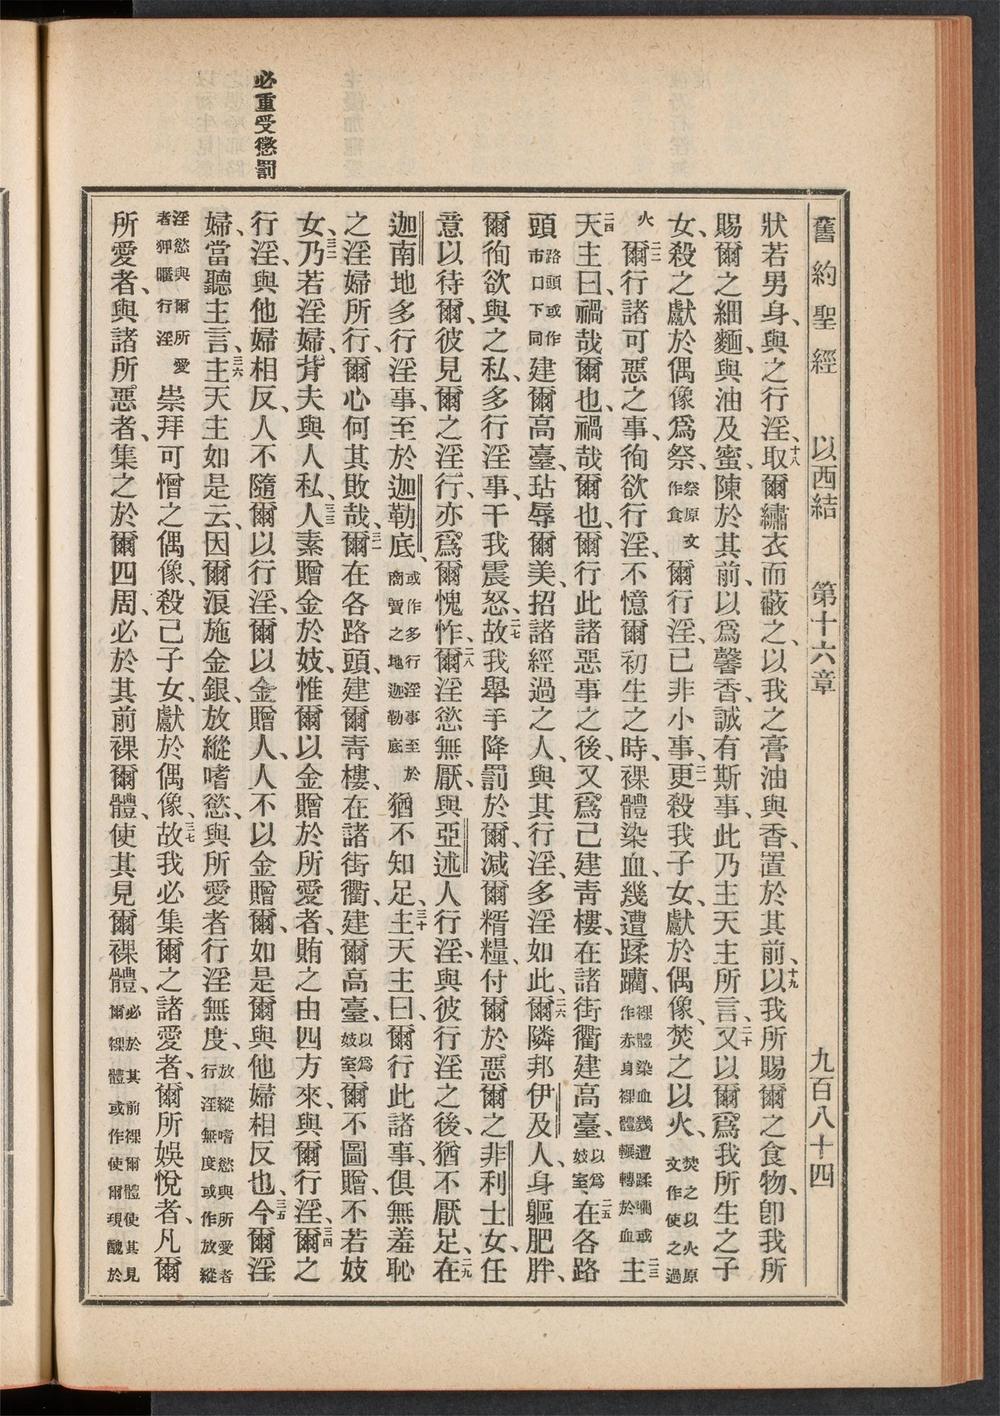 舊約聖經 以西結 第十六章 九百八十四
狀若男身、與之行淫、十八取爾繡衣而蔽之、以我之膏油與香、置於其前、十九以我所賜爾之食物、卽我所
賜爾之細麵、與油及蜜、陳於其前、以爲馨香、誠有斯事、此乃主天主所言、二十又以爾爲我所生之子
女、殺之獻於偶像爲祭、祭原文作食爾行淫、已非小事、二一更殺我子女、獻於偶像、焚之以火、焚之以火原文作使之過
火二二爾行諸可惡之事、徇欲行淫、不憶爾初生之時、裸體染血、幾遭蹂躪、裸體染血幾遭蹂躪或作赤身裸體輾轉於血二三主
二四天主曰、禍哉爾也、禍哉爾也、爾行此諸惡事之後、又爲己建靑樓、在諸街衢建高臺、以爲妓室、二五在各路
頭路頭或作市口下同建爾高臺、玷辱爾美、招諸經過之人、與其行淫、多淫如此、二六爾隣邦伊及人、身軀肥胖、
爾徇欲與之私、多行淫事、干我震怒、二七故我舉手降罰於爾、減爾糈糧、付爾於惡爾之非利士女、任
意以待爾、彼見爾之淫行、亦爲爾愧怍、二八爾淫慾無厭、與亞述人行淫、與彼行淫之後、猶不厭足、二九在
迦南地多行淫事、至於迦勒底、或作多行淫事至於商賈之地迦勒底猶不知足、三十主天主曰、爾行此諸事、俱無羞恥
之淫婦所行、爾心何其敗哉、三一爾在各路頭、建爾靑樓、在諸街衢、建爾高臺、以爲妓室、爾不圖贈、不若妓
女、三二乃若淫婦、背夫與人私、三三人素贈金於妓、惟爾以金贈於所愛者、賄之由四方來、與爾行淫、三四爾之
行淫、與他婦相反、人不隨爾以行淫、爾以金贈人、人不以金贈爾、如是爾與他婦相反也、三五今爾淫
婦、當聽主言、三六主天主如是云、因爾浪施金銀、放縱嗜慾、與所愛者行淫無度、放縱嗜慾與所愛者行淫無度或作放縱
淫慾與爾所愛者狎暱行淫崇拜可憎之偶像、殺己子女、獻於偶像、三七故我必集爾之諸愛者、爾所娛悅者、凡爾
所愛者、與諸所惡者、集之於爾四周、必於其前裸爾體、使其見爾裸體、必於其前裸爾體使其見爾裸體或作使爾現醜於
必重受懲罰